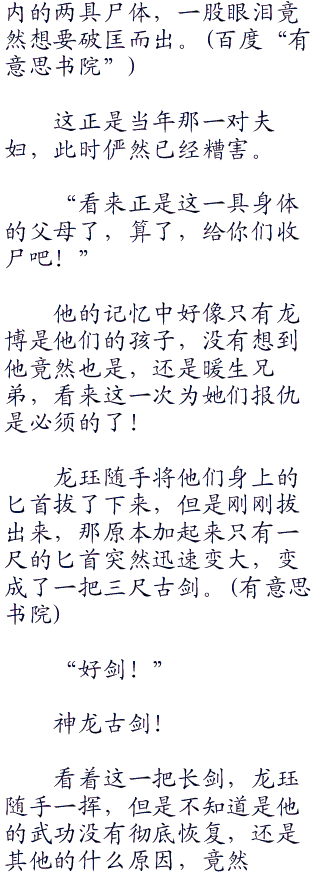 内的两具尸体，一股眼泪竟
然想要破匡而出。(百度“有
意思书院”)
这正是当年那一对夫
妇，此时俨然已经糟害。
“看来正是这一具身体
的父母了，算了，给你们收
尸吧！”
他的记忆中好像只有龙
博是他们的孩子，没有想到
他竟然也是，还是暖生兄
弟，看来这一次为她们报仇
是必须的了！
龙珏随手将他们身上的
匕首拔了下来，但是刚刚拔
出来，那原本加起来只有一
尺的匕首突然迅速变大，变
成了一把三尺古剑。(有意思
书院)
“好剑！”
神龙古剑！
看着这一把长剑，龙珏
随手一挥，但是不知道是他
的武功没有彻底恢复，还是
其他的什么原因，竟然